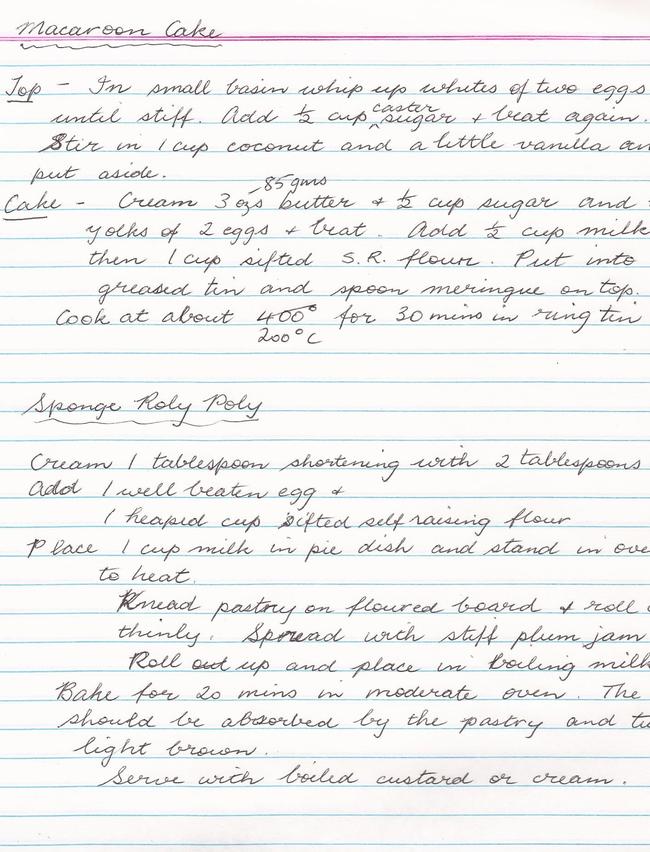 Macaroon Cake
Top - In small basin whip up whites of two eggs
until stiff. Add ½ cup caster sugar + beat again.
Stir in 1 cup coconut and a little vanilla an
put aside.
85 gms
Cake - Cream 3 ozs butter + ½ cup sugar and
yolks of 2 eggs + beat. Add ½ cup milk
then 1 cup sifted S.R. flour. Put into
greased tin and spoon meringue on top.
Cook at about 400° for 30 mins in ring tin
200°C
Sponge Roly Poly
Cream 1 tablespoon shortening with 2 tablespoons
Add 1 well beaten egg +
1 heaped cup sifted self raising flour
Place 1 cup milk in pie dish and stand in ove
to heat.
Knead pastry on floured board + roll
thinly. Spread with stiff plum jam
Roll out up and place in boiling milk
Bake for 20 mins in moderate oven. The
should be absorbed by the pastry and tu
light brown.
Serve with boiled custard or cream.